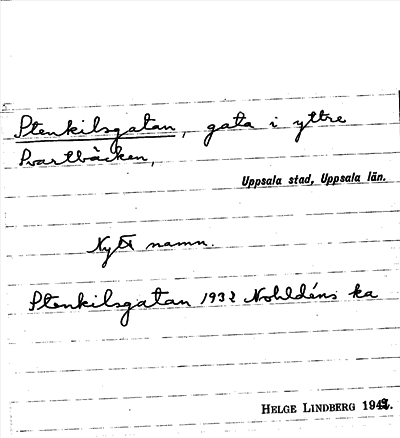 Stenkilsgatan, gata i yttre
Svartbäcken,
Uppsala stad, Uppsala län.
Nytt namn.
Stenkilsgatan 1932 Nohldéns ka
HELGE LINDBERG